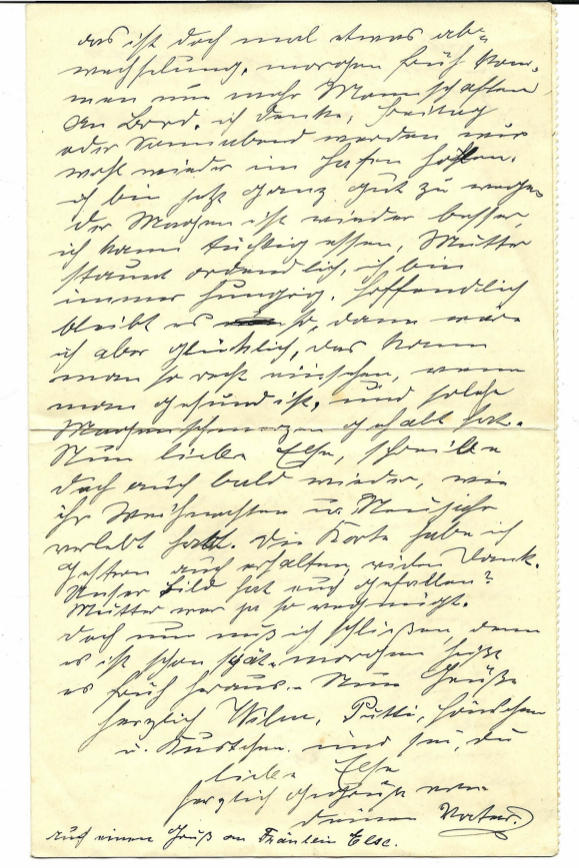 das ist doch mal etwas ab-
wechslung. morgen früh kom-
men nun mehr Mannschaften
an Bord. ich denke, Freitag
oder Sonnabend werden wir
wohl wieder im Hafen holen.
ich bin jetzt ganz gut zu wege
der Magen ist wieder besser,
ich kann tüchtig essen, Mutter
staunt ordendlich, ich bin
immer hungrig. Hoffendlich
bleibt es so, dann wäre
ich aber glücklich, das kann
man so recht einsehen, wenn
man gesund ist, und solche
Magenschmerzen gehabt hat.
Nun liebe Else, schreibe
doch auch bald wieder, wie
ihr Weihnachten u. Neujahr
verlebt habt. Die Karte habe ich
gestern auch erhalten, vielen Dank.
Unser Bild hat euch gefallen?
Mutter war ja so vergnügt.
Doch nun muß ich schließen, denn
es ist schon spät. morgen heißt
es früh heraus. Nun Grüße
herzlich Wilm, Putti, Hänschen
u. Kurtchen. und sei, du
liebe Else
herzlich gegrüßt von
deinem Vater.
Auch einen Gruß an Fräulein Else.